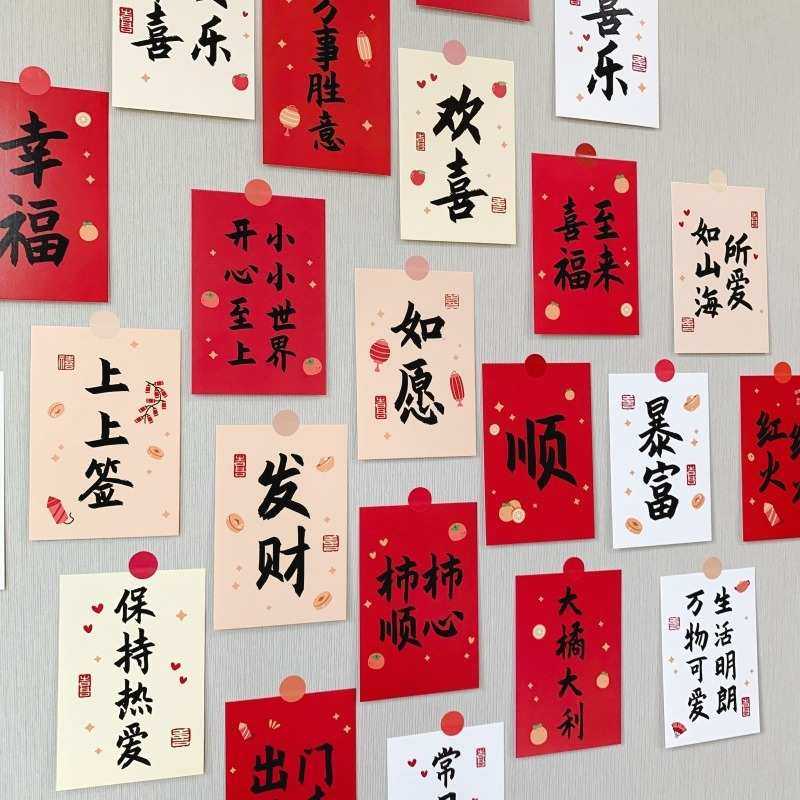 喜乐
万事胜意
欢喜
喜乐
幸福
小小世界
开心至上
至来
喜福
所爱
如山海
如愿
上上签
顺
暴富
红火
发财
柿柿
顺心
保持热爱
大橘大利
生活明朗
万物可爱
出门
常